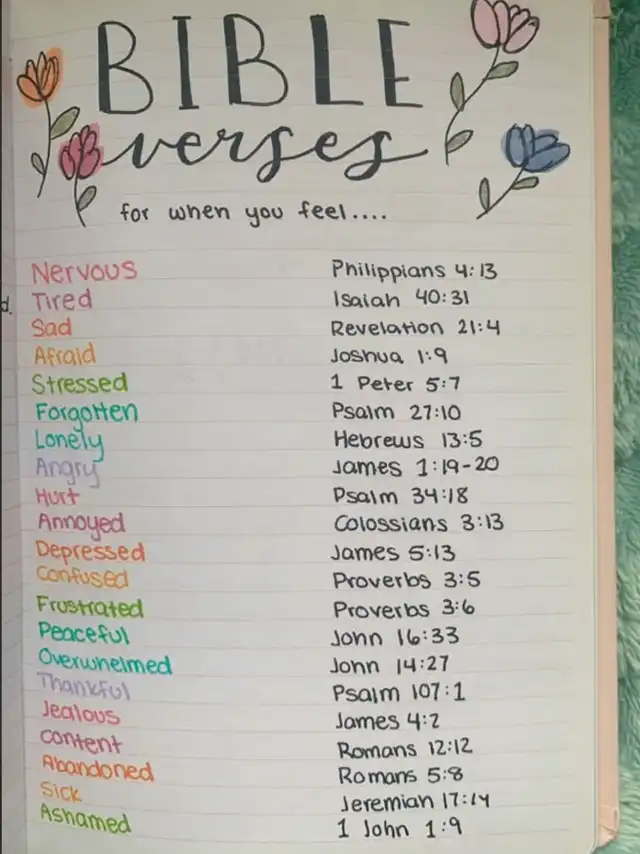 BIBLE
verses
for when you feel....
Nervous Philippians 4:13
d. Tired Isaiah 40:31
Sad Revelation 21:4
Afraid Joshua 1:9
Stressed 1 Peter 5:7
Forgotten Psalm 27:10
Lonely Hebrews 13:5
Angry James 1:19-20
Hurt Psalm 34:18
Annoyed Colossians 3:13
Depressed James 5:13
Confused Proverbs 3:5
Frustrated Proverbs 3:6
Peaceful John 16:33
Overwhelmed John 14:27
Thankful Psalm 107:1
Jealous James 4:2
content Romans 12:12
Abandoned Romans 5:8
Sick Jeremiah 17:14
Ashamed 1 John 1:9